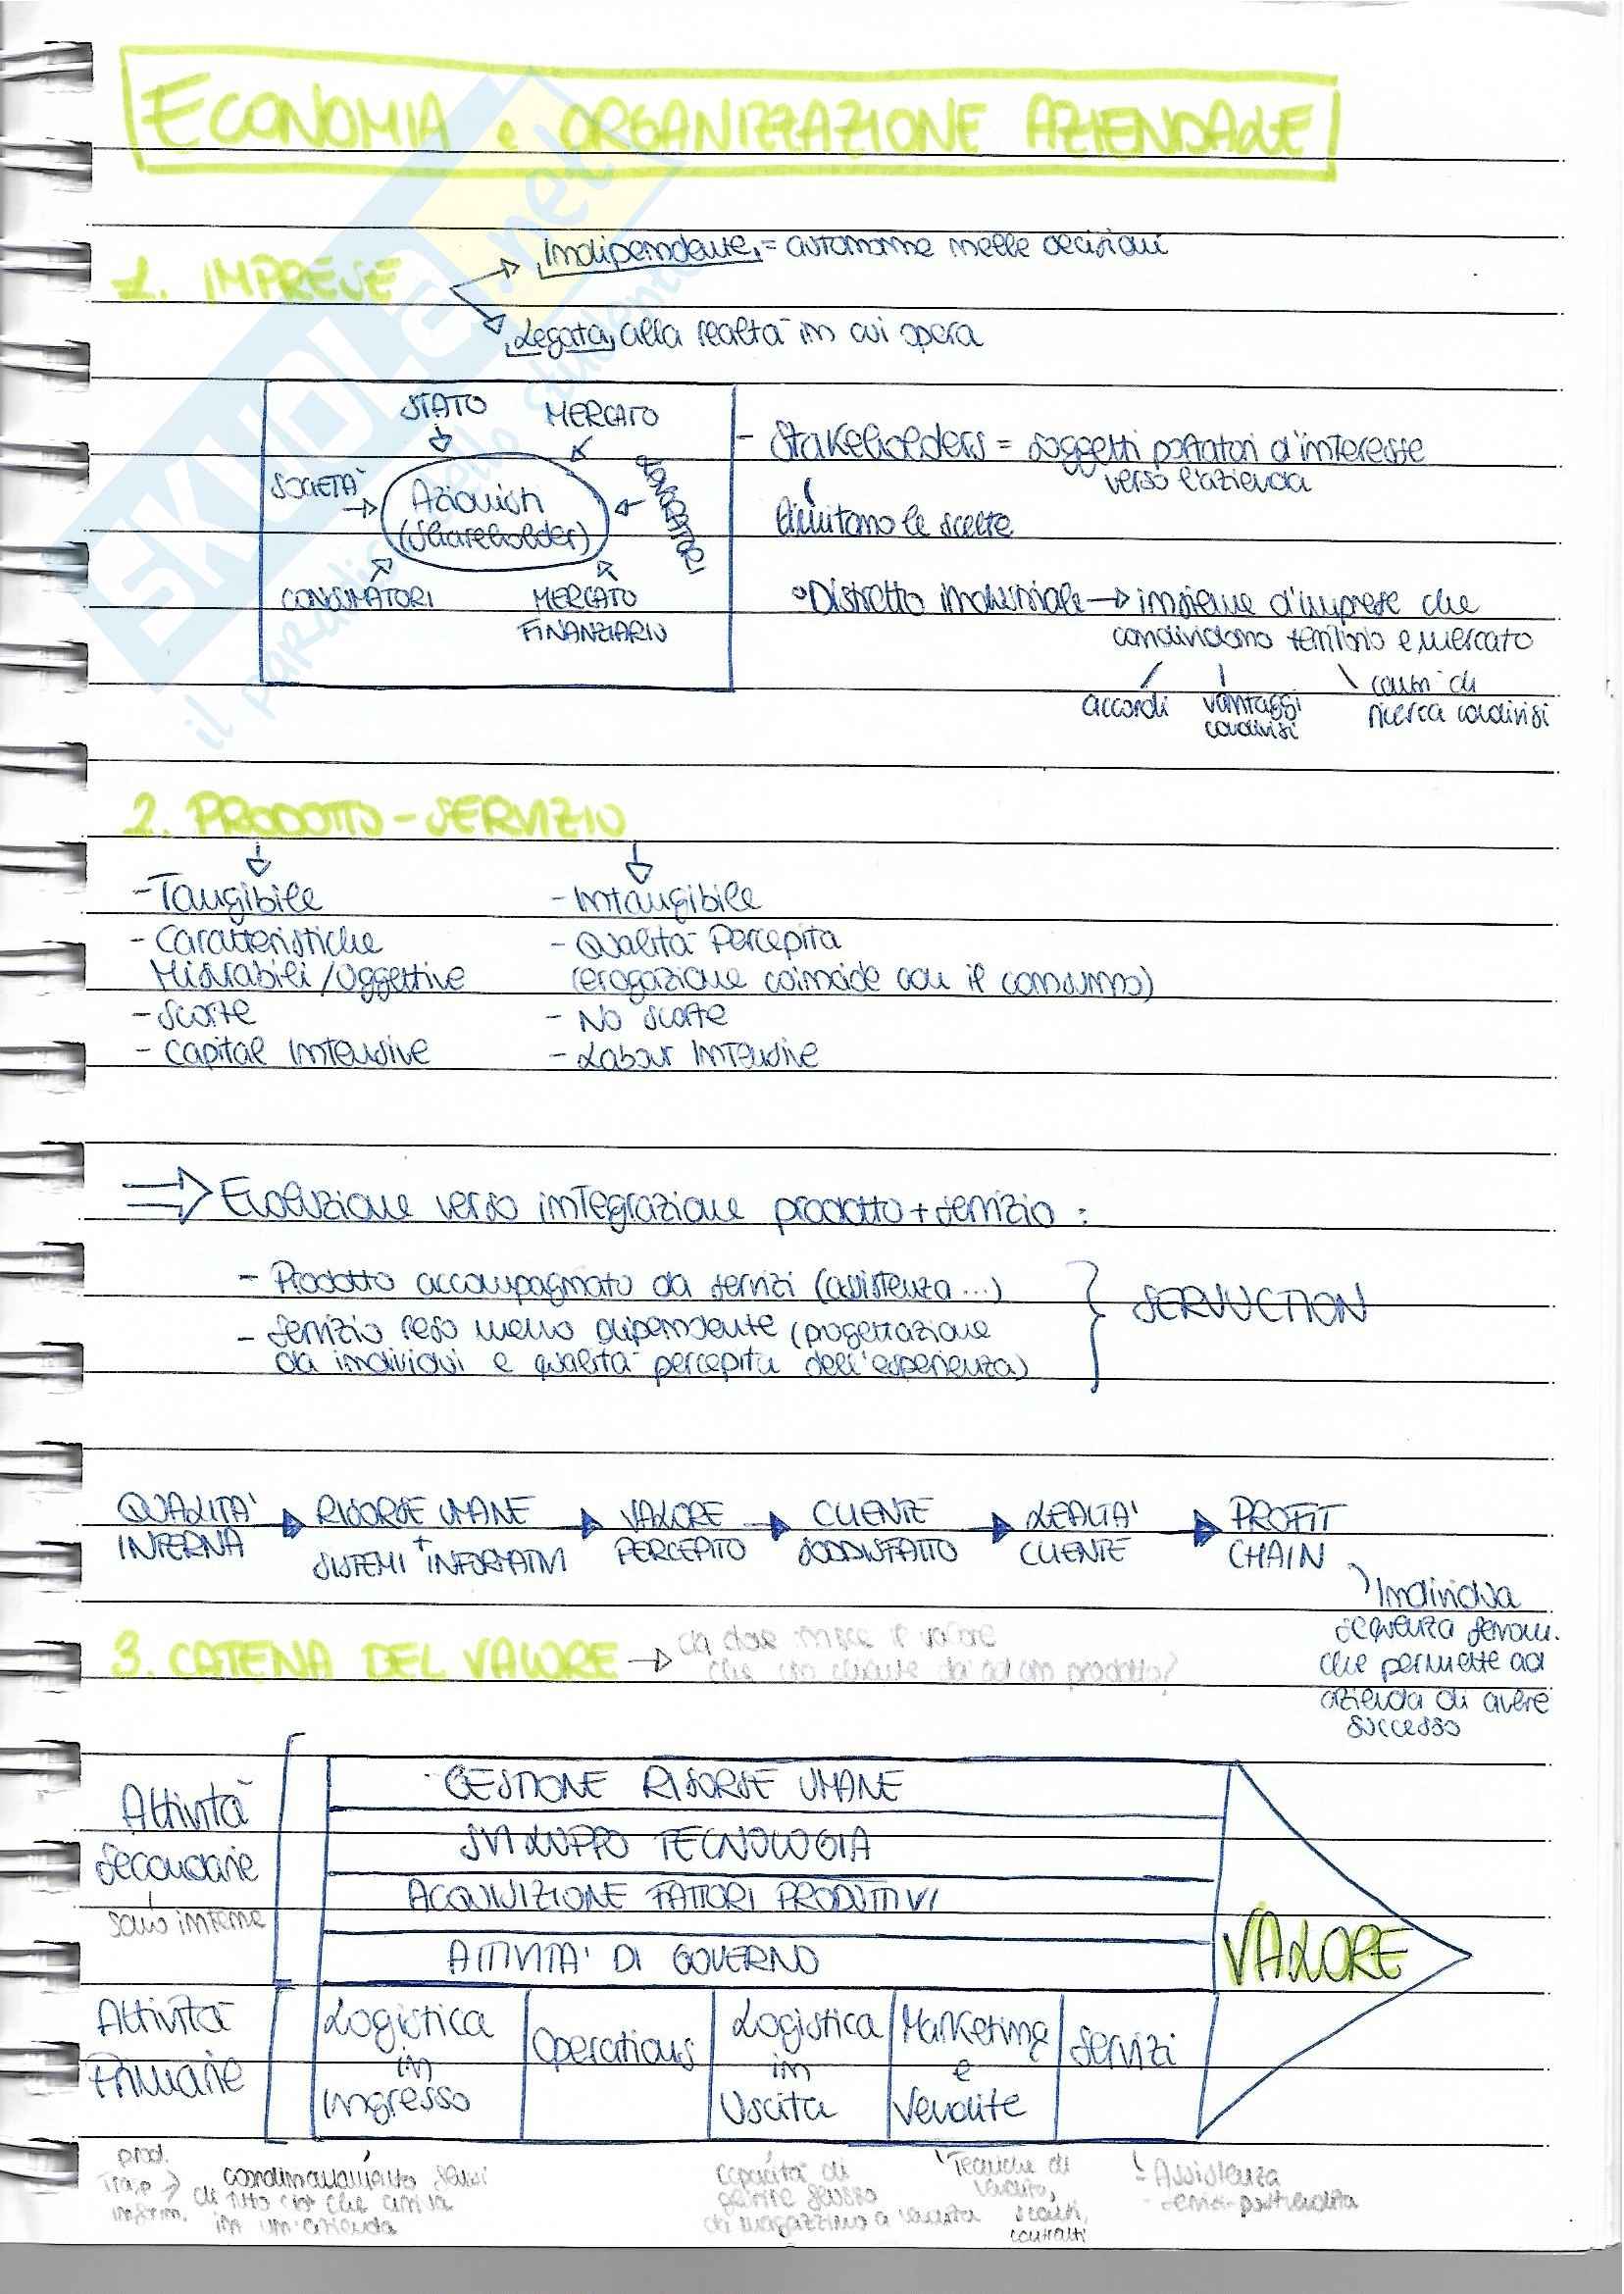 ECONOMIA e ORGANIZZAZIONE AZIENDALE
1. IMPRESE
Indipendente = autonome nelle decisioni
Legata alla realtà in cui opera
STATO
MERCATO
SOCIETÀ
Azionisti
(Shareholder)
LAVORATORI
CONSUMATORI
MERCATO
FINANZIARIO
- Stakeholders = soggetti portatori d'interesse
verso l'azienda
limitano le scelte
Distretto industriale → insieme d'imprese che
condividono territorio e mercato
accordi
vantaggi
condivisi
centri di
ricerca condivisi
2. PRODOTTO - SERVIZIO
- Tangibile
- Caratteristiche
Misurabili/Oggettive
- Scorte
- Capital Intensive
- Intangibile
- Qualità Percepita
(erogazione coincide con il consumo)
- No scorte
- Labour Intensive
⇒ Evoluzione verso integrazione prodotto + servizio :
- Prodotto accompagnato da servizi (assistenza ...)
- Servizio reso meno dipendente (progettazione
da individui e qualità percepita dell'esperienza)
SERVUCTION
QUALITA'
INTERNA
RISORSE UMANE
+
SISTEMI INFORMATIVI
VALORE
PERCEPITO
CLIENTE
SODDISFATTO
LEALTA'
CLIENTE
PROFIT
CHAIN
Individua
sequenza
che permette ad
azienda di avere
successo
3. CATENA DEL VALORE → da dove nasce il valore
che un cliente dà ad un prodotto?
Attività
Secondarie
sono interne
GESTIONE RISORSE UMANE
SVILUPPO TECNOLOGIA
ACQUISIZIONE FATTORI PRODUTTIVI
ATTIVITA' DI GOVERNO
VALORE
Attività
Primarie
Logistica
in
Ingresso
Operations
Logistica
in
Uscita
Marketing
e
Vendite
Servizi
prod.
coordinamento
di tutto ciò che arriva
in un'azienda
capacità di
di magazzino a
Tecniche di
vendita,
sconti,
contratti
- Assistenza
- servizi post vendita
SKUOLA.net
il paradiso dello studente